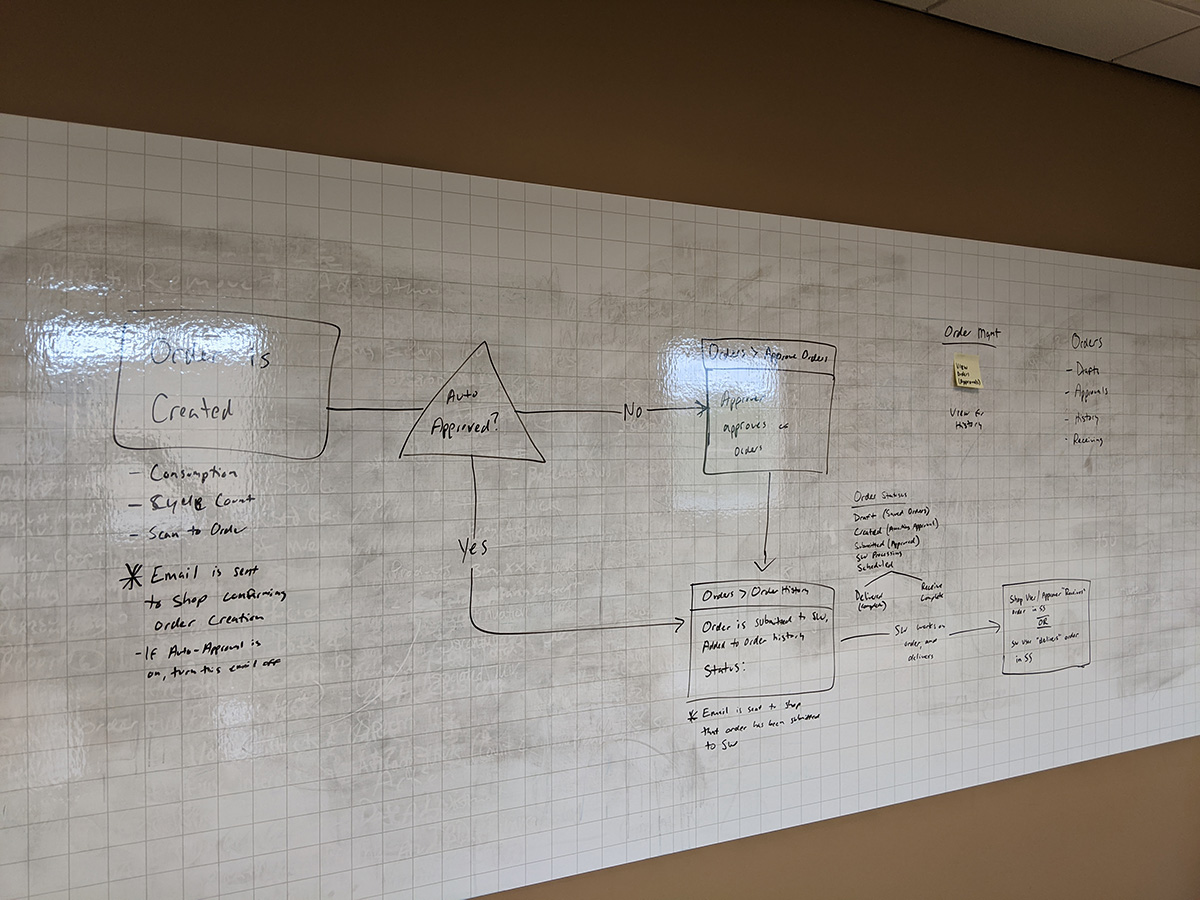 Order is
Created
- Consumption
- Cycle Count
- Scan to Order
* Email is sent
to Shop confirming
Order Creation
- If Auto-Approval is
on, turn this email off
Auto
Approved?
No
Yes
Orders > Approve Orders
Approver
approves
orders
Orders > Order History
Order is submitted to SW,
Added to order history
Status:
* Email is sent to shop
that order has been submitted
to SW
Order Statuses
Draft (Saved Orders)
Created (Awaiting Approval)
Submitted (Approved)
SW Processing
Scheduled
Delivered
(complete)
Receive
Complete
SW works on
order, and
delivers
Shop User/Approver "Receives"
order in SS
OR
SW user "delivers" order
in SS
Order Mgmt
View
Orders
(Approvals)
View
History
Orders
- Drafts
- Approvals
- History
- Receiving